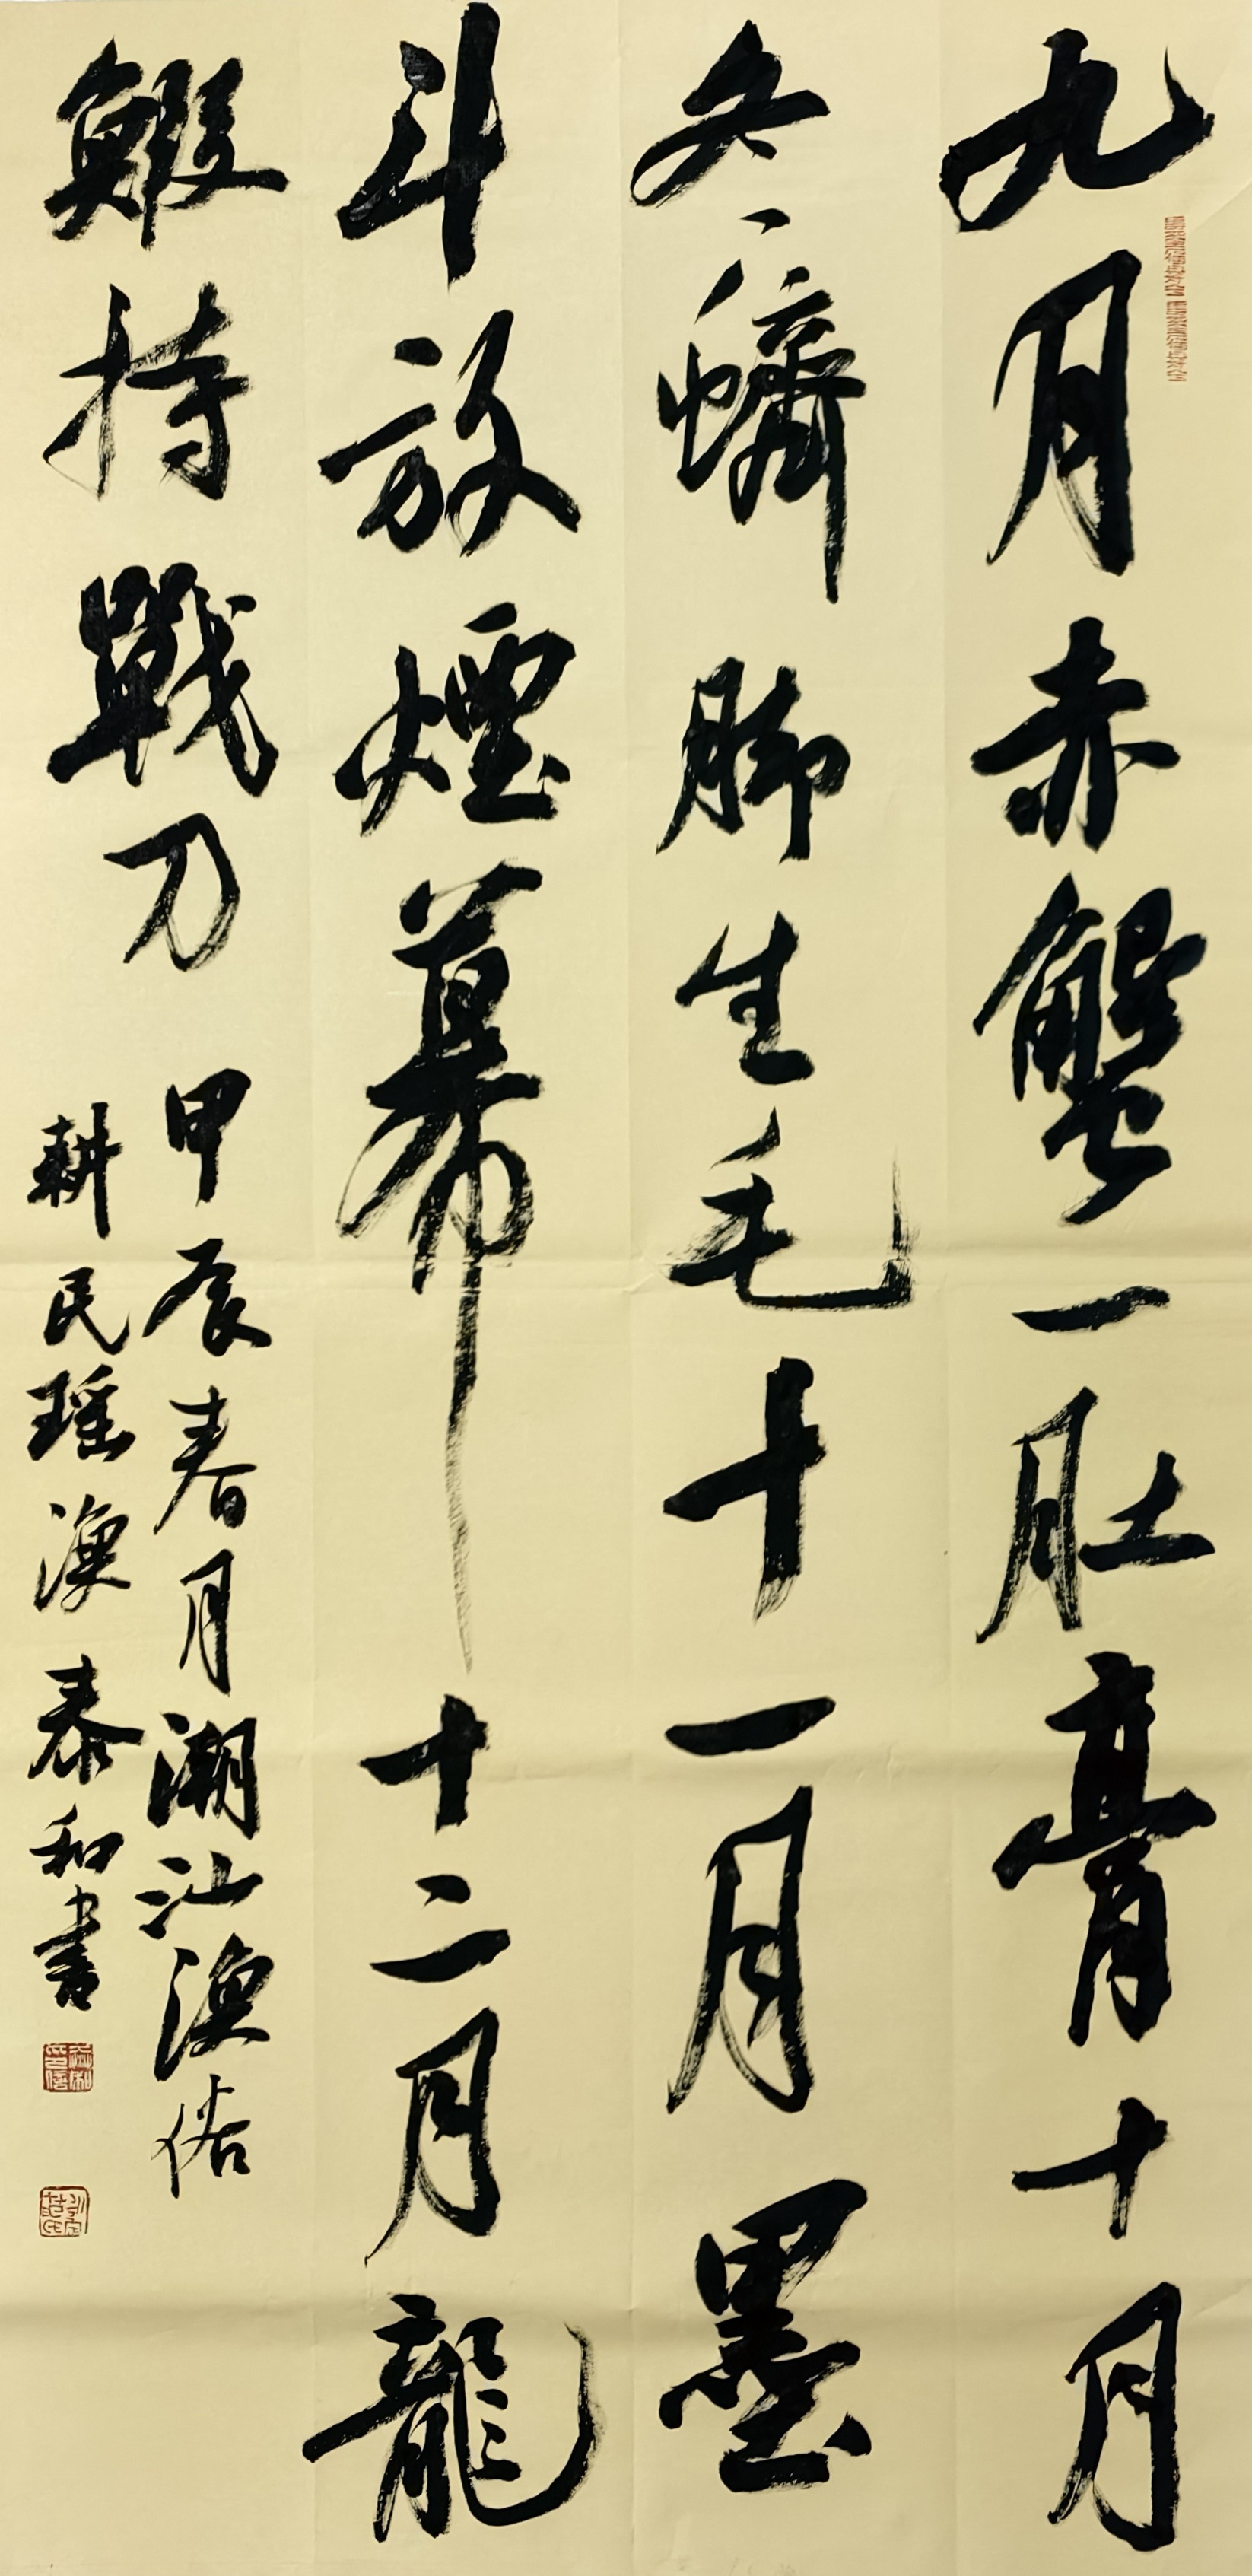 九月赤蟹一肚膏十月
冬蠐脚生毛十一月墨
斗放煙幕十二月龍
鰕持戰刀
甲辰春月潮汕漁俗
耕民瑶漁泰和書